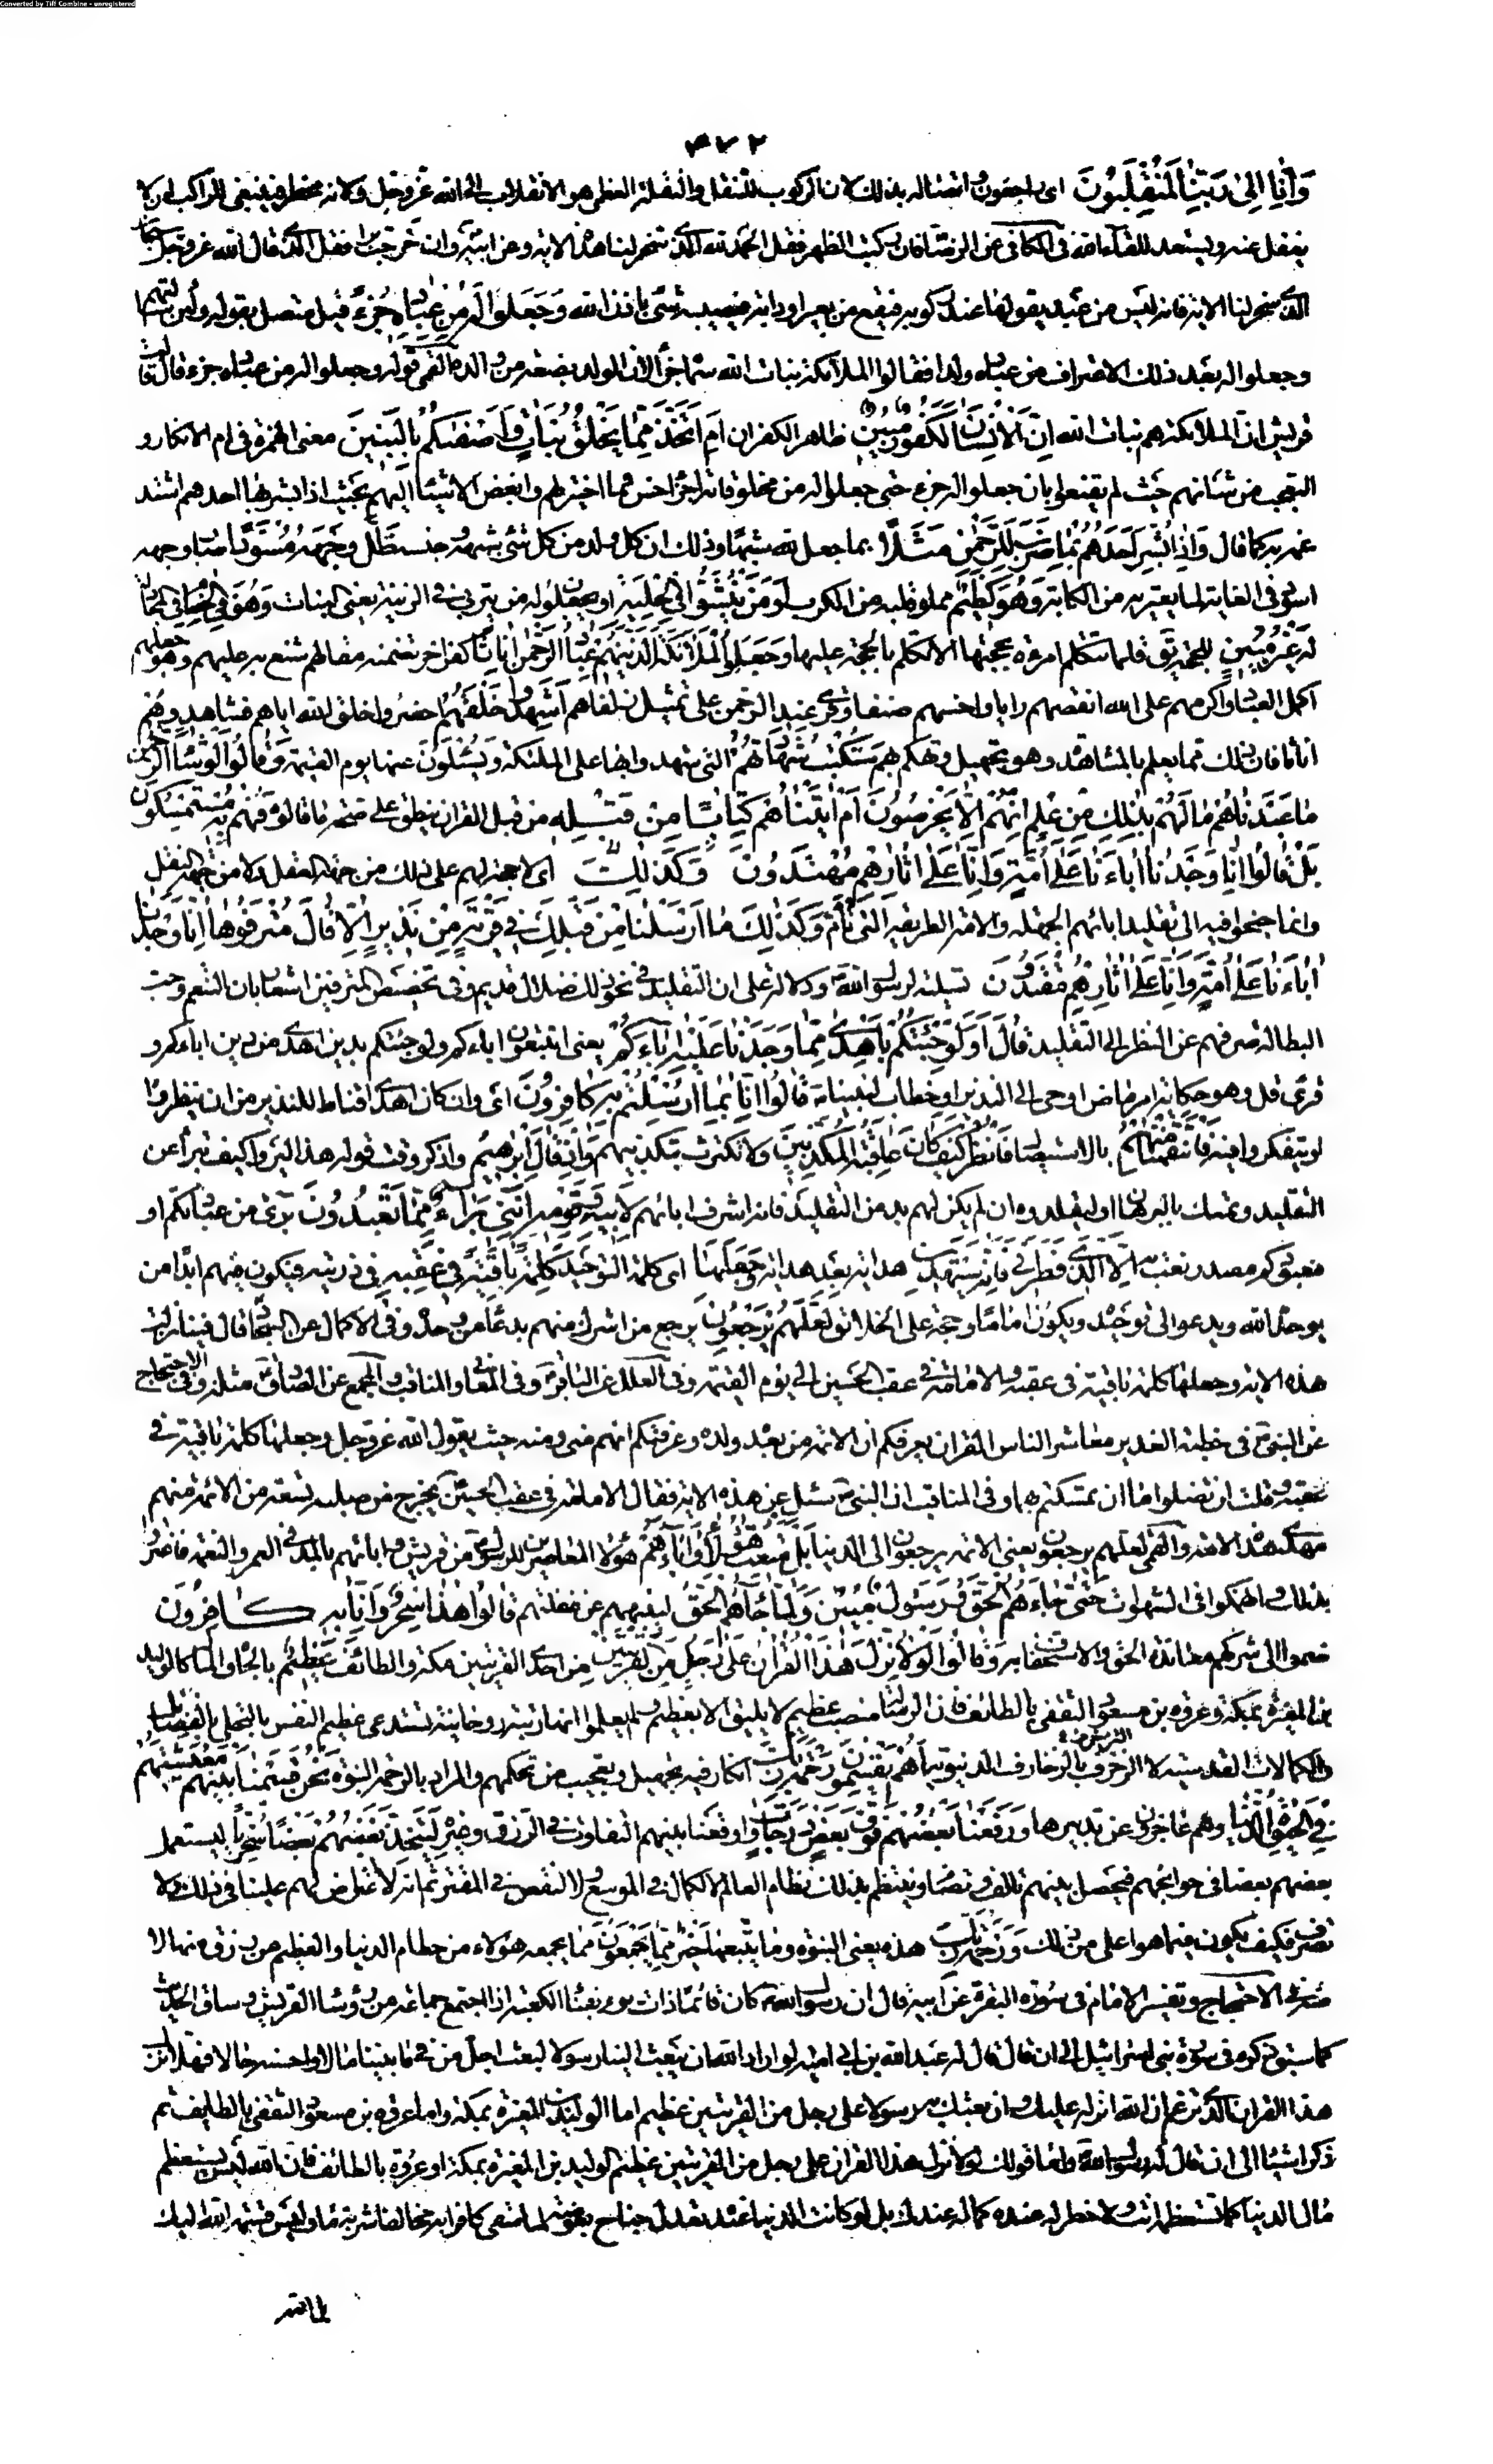 Converted by Tiff Combine - unregistered
٤٧٢
وَاِنّا اِلىٰ رَبِّنٰا لَمُنْقَلِبُونَ اى راجعون واتصاله بذلك لان الركوب للتنقل والنقلة العظمى هو الانقلاب الى الله عز وجل ولانه مخطر فينبغى للراكب ان لا
يغفل عنه ويستعد للقاء الله فى الكافى عن الرضا فان ركبت الظهر فقل الحمد لله الذى سخر لنا هذا الاية وعن ابيه وان خرجت برا فقل الذى قال الله عز وجل سبحان
الذى سخر لنا الاية فانه ليس من عبد يقولها عند ركوبه فيقع من بعير او دابة فيصيبه شىء باذن الله وَجَعَلُوا لَهُ مِنْ عِبٰادِهِ جُزْءً قيل متصل بقوله ولئن سئلتهم
وجعلوا له بعد ذلك الاعتراف من عباده ولدا فقالوا الملائكة بنات الله سماه جزأ لان الولد بضعة من والده القمى قوله وجعلوا له من عباده جزء قال قالت
قريش ان الملائكة هم بنات الله اِنَّ الْاِنْسٰانَ لَكَفُورٌ مُبِينٌ ظاهر الكفران اَمِ اتَّخَذَ مِمّٰا يَخْلُقُ بَنٰاتٍ وَاَصْفٰيكُمْ بِالْبَنِينَ معنى الهمزة فى ام الانكار و
التعجب من شانهم حيث لم يقنعوا بان جعلوا له جزء حتى جعلوا له من مخلوقاته اجزاء اخس مما اختير لهم وابغض الاشياء اليهم بحيث اذا بشر بها احدهم اشتد
غمه به كما قال وَاِذٰا بُشِّرَ اَحَدُهُمْ بِمٰا ضَرَبَ لِلرَّحْمٰنِ مَثَلًا بما جعل لله شبها وذلك ان كل ولد من كل شىء شبهه وجنسه ظَلَّ وَجْهُهُ مُسْوَدًّا صار وجهه
اسود فى الغاية لما يعتريه من الكآبة وَهُوَ كَظِيمٌ مملو قلبه من الكرب اَوَمَنْ يُنَشَّؤُا فِى الْحِلْيَةِ او يجعلون له من يتربى فى الزينة يعنى البنات وَهُوَ فِى الْخِصٰامِ فى المجادلة
غَيْرُ مُبِينٍ للحجة يق قلما تتكلم امرأة بحجتها الا تتكلم بالحجة عليها وَجَعَلُوا الْمَلٰائِكَةَ الَّذِينَ هُمْ عِبٰادُ الرَّحْمٰنِ اِنٰاثًا كفر اخر تضمنه مقالهم شنع به عليهم وهو جعلهم
اكمل العباد واكرمهم على الله انقصهم رايا واخسهم صنفا وقرئ عند الرحمن على تمثيل زلفاهم اَشَهِدُوا خَلْقَهُمْ احضروا خلق الله اياهم فشاهدوهم
اناثا فان ذلك مما يعلم بالمشاهدة وهو تجهيل وتهكم بهم سَتُكْتَبُ شَهٰادَتُهُمْ التى شهدوا بها على الملئكة وَيُسْئَلُونَ عنها يوم القيمة وَقٰالُوا لَوْ شٰاءَ الرَّحْمٰنُ
مٰا عَبَدْنٰاهُمْ مٰا لَهُمْ بِذٰلِكَ مِنْ عِلْمٍ اِنْ هُمْ اِلّٰا يَخْرُصُونَ اَمْ اٰتَيْنٰاهُمْ كِتٰابًا مِنْ قَبْلِهِ من قبل القران ينطق على صحة ما قالوه فَهُمْ بِهِ مُسْتَمْسِكُونَ
بَلْ قٰالُوا اِنّٰا وَجَدْنٰا اٰبٰاءَنٰا عَلىٰ اُمَّةٍ وَاِنّٰا عَلىٰ اٰثٰارِهِمْ مُهْتَدُونَ وَكَذٰلِكَ اى لا حجة لهم على ذلك من جهة العقل ولا من جهة النقل
وانما جنحوا فيه الى تقليد ابائهم الجهلة والامة الطريقة التى تؤم وَكَذٰلِكَ مٰا اَرْسَلْنٰا مِنْ قَبْلِكَ فِى قَرْيَةٍ مِنْ نَذِيرٍ اِلّٰا قٰالَ مُتْرَفُوهٰا اِنّٰا وَجَدْنٰا
اٰبٰاءَنٰا عَلىٰ اُمَّةٍ وَاِنّٰا عَلىٰ اٰثٰارِهِمْ مُقْتَدُونَ تسلية لرسول الله ودلالة على ان التقليد فى نحو ذلك ضلال قديم وفى تخصيص المترفين اشعار بان التنعم وحب
البطالة صرفهم عن النظر الى التقليد قٰالَ اَوَلَوْ جِئْتُكُمْ بِاَهْدىٰ مِمّٰا وَجَدْتُمْ عَلَيْهِ اٰبٰاءَكُمْ يعنى اتتبعون اباءكم ولو جئتكم بدين اهدى من دين ابائكم و
قرئ قل وهو حكاية امر ماض اوحى الى النذير او خطاب لنبينا قٰالُوا اِنّٰا بِمٰا اُرْسِلْتُمْ بِهِ كٰافِرُونَ اى وان كان اهدى اقناط للنذير من ان ينظروا
او يتفكروا فيه فَانْتَقَمْنٰا مِنْهُمْ بالاستيصال فَانْظُرْ كَيْفَ كٰانَ عٰاقِبَةُ الْمُكَذِّبِينَ ولا تكترث بتكذيبهم وَاِذْ قٰالَ اِبْرٰهِيمُ واذكر وقت قوله هذا ليروا كيف تبرأ عن
التقليد وتمسك بالبرهان او ليقلدوه ان لم يكن لهم بد من التقليد فانه اشرف ابائهم لِاَبِيهِ وَقَوْمِهِ اِنَّنِى بَرٰاءٌ مِمّٰا تَعْبُدُونَ برئ من عبادتكم او
معبودكم مصدر نعت به اِلَّا الَّذِى فَطَرَنِى فَاِنَّهُ سَيَهْدِينِ هداية بعد هداية وَجَعَلَهٰا اى كلمة التوحيد كَلِمَةً بٰاقِيَةً فِى عَقِبِهِ فى ذريته فيكون فيهم ابدا من
يوحد الله ويدعو الى توحيده ويكون اماما وحجة على الخلائق لَعَلَّهُمْ يَرْجِعُونَ يرجع من اشرك منهم بدعاء من وحده وفى الاكمال عن السجاد قال فينا نزلت
هذه الاية وجعلها كلمة باقية فى عقبه والامامة فى عقب الحسين الى يوم القيمة وفى العلل عن الباقر وفى المعانى والمناقب والمجمع عن الصادق مثله وفى الاحتجاج
عن النبى فى خطبة الغدير معاشر الناس القران يعرفكم ان الائمة من بعده ولده وعرفتكم انهم منى ومنه حيث يقول الله عز وجل وجعلها كلمة باقية فى
عقبه وقلت لن تضلوا ما ان تمسكتم بهما وفى المناقب ان النبى سئل عن هذه الاية فقال الامامة فى عقب الحسين يخرج من صلبه تسعة من الائمة منهم
مهدى هذه الامة والقمى لعلهم يرجعون يعنى الائمة يرجعون الى الدنيا بَلْ مَتَّعْتُ هٰؤُلٰاءِ وَاٰبٰاءَهُمْ هؤلاء المعاصرين للرسول من قريش واباءهم بالمد فى العمر والنعمة فاغتروا
بذلك وانهمكوا فى الشهوات حَتّىٰ جٰاءَهُمُ الْحَقُّ وَرَسُولٌ مُبِينٌ وَلَمّٰا جٰاءَهُمُ الْحَقُّ لينبههم عن غفلتهم قٰالُوا هٰذٰا سِحْرٌ وَاِنّٰا بِهِ كٰافِرُونَ
ضموا الى شركهم معاندة الحق والاستخفاف به وَقٰالُوا لَوْلٰا نُزِّلَ هٰذَا الْقُرْاٰنُ عَلىٰ رَجُلٍ مِنَ الْقَرْيَتَيْنِ من احدى القريتين مكة والطائف عَظِيمٍ بالجاه والمال كالوليد
بن المغيرة بمكة وعروة بن مسعود الثقفى بالطائف فان الرسالة منصب عظيم لا يليق الا بعظيم ولم يعلموا انها رتبة روحانية تستدعى عظيم النفس بالتحلى بالفضايل
والكمالات القدسية لا التزخرف بالزخارف الدنيوية اَهُمْ يَقْسِمُونَ رَحْمَتَ رَبِّكَ انكار فيه تجهيل وتعجيب من تحكمهم والمراد بالرحمة النبوة نَحْنُ قَسَمْنٰا بَيْنَهُمْ مَعِيشَتَهُمْ
فِى الْحَيٰوةِ الدُّنْيٰا وهم عاجزون عن تدبيرها وَرَفَعْنٰا بَعْضَهُمْ فَوْقَ بَعْضٍ دَرَجٰاتٍ واوقعنا بينهم التفاوت فى الرزق وغيره لِيَتَّخِذَ بَعْضُهُمْ بَعْضًا سُخْرِيًّا ليستعمل
بعضهم بعضا فى حوائجهم فيحصل بينهم تالف وتضام وينتظم بذلك نظام العالم لا لكمال فى الموسع ولا لنقص فى المقتر ثم انه لا اعتراض لهم علينا فى ذلك ولا
تصرف فكيف يكون فيما هو اعلى من ذلك وَرَحْمَتُ رَبِّكَ هذه يعنى النبوة وما يتبعها خَيْرٌ مِمّٰا يَجْمَعُونَ مما يجمعه هؤلاء من حطام الدنيا والعظيم من رزق منها لا
منه فى الاحتجاج وتفسير الامام فى سورة البقرة عن ابيه قال ان رسول الله كان قاعدا ذات يوم بفناء الكعبة اذ اجتمع جماعة من رؤساء القريش وساق الحديث
كما سبق ذكره فى سورة بنى اسرائيل الى ان قال قال له عبد الله بن ابى امية لو اراد الله ان يبعث الينا رسولا لبعث اجل من فى ما بيننا مالا واحسنه حالا فهلا نزل
هذا القران الذى تزعم ان الله انزله عليك وانبعثك به رسولا على رجل من القريتين عظيم اما الوليد بن المغيرة بمكة واما عروة بن مسعود الثقفى بالطايف ثم
ذكر اشياء الى ان قال له رسول الله واما قولك لولا نزل هذا القران على رجل من القريتين عظيم الوليد بن المغيرة بمكة او عروة بالطائف فان الله ليس يستعظم
مال الدنيا كما تستعظمه انت ولا خطر له عنده كما له عندك بل لو كانت الدنيا عنده تعدل جناح بعوضة لما سقى كافرا به مخالفا شربة ماء وليس قسمة الله اليك